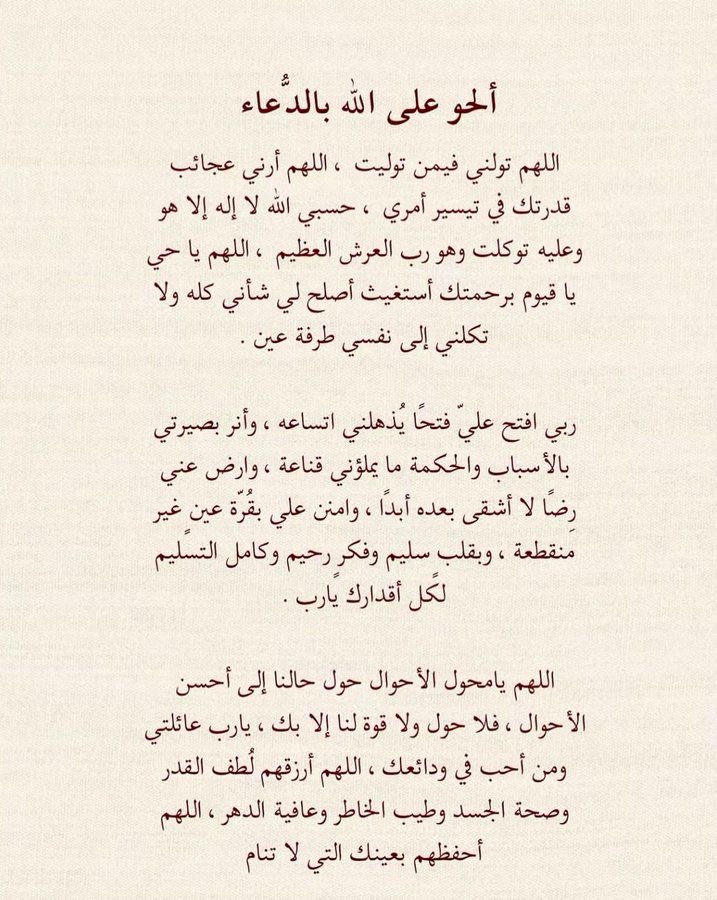 ألحو على الله بالدُّعاء
اللهم تولني فيمن توليت ، اللهم أرني عجائب
قدرتك في تيسير أمري ، حسبي الله لا إله إلا هو
وعليه توكلت وهو رب العرش العظيم ، اللهم يا حي
يا قيوم برحمتك أستغيث أصلح لي شأني كله ولا
تكلني إلى نفسي طرفة عين .
ربي افتح عليّ فتحًا يُذهلني اتساعه ، وأنر بصيرتي
بالأسباب والحكمة ما يملؤني قناعة ، وارض عني
رِضًا لا أشقى بعده أبدًا ، وامنن علي بقُرّة عين غير
منقطعة ، وبقلب سليم وفكرٍ رحيم وكامل التسليم
لكل أقدارك يارب .
اللهم يامحول الأحوال حول حالنا إلى أحسن
الأحوال ، فلا حول ولا قوة لنا إلا بك ، يارب عائلتي
ومن أحب في ودائعك ، اللهم أرزقهم لُطف القدر
وصحة الجسد وطيب الخاطر وعافية الدهر ، اللهم
أحفظهم بعينك التي لا تنام